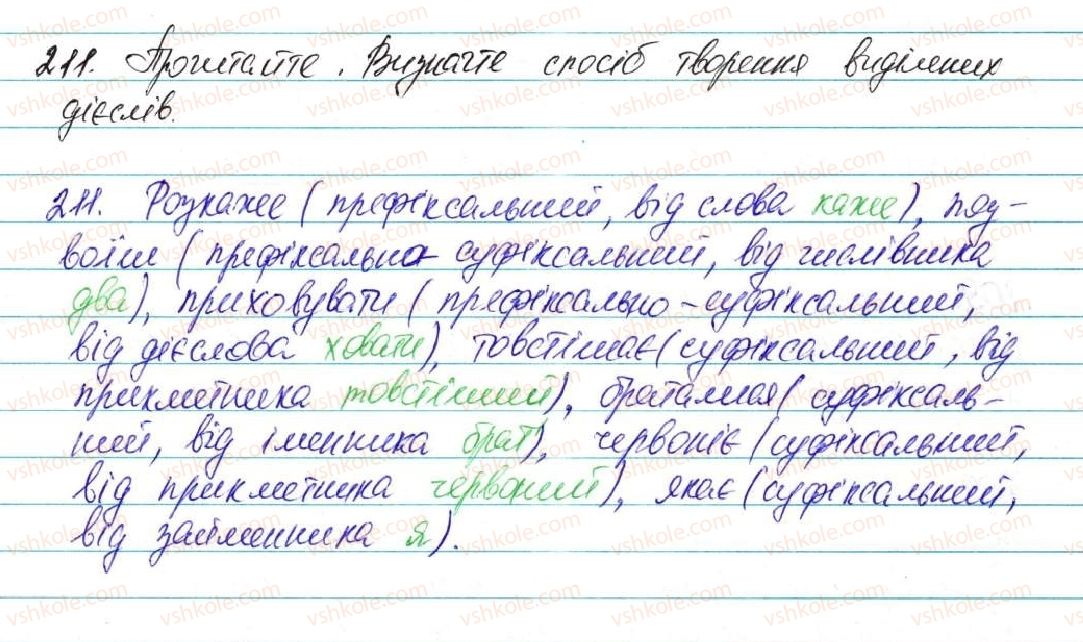 211. Прочитайте. Визначте спосіб творення виділених
дієслів.
211. Розкаже (префіксальний, від слова каже), под-
воїли (префіксально-суфіксальний, від числівника
два), приховувати (префіксально-суфіксальний,
від дієслова ховати), товстішає (суфіксальний, від
прикметника товстіший), браталися (суфіксаль-
ний, від іменника брат), червоніє (суфіксальний,
від прикметника червоний), якає (суфіксальний,
від займенника я).